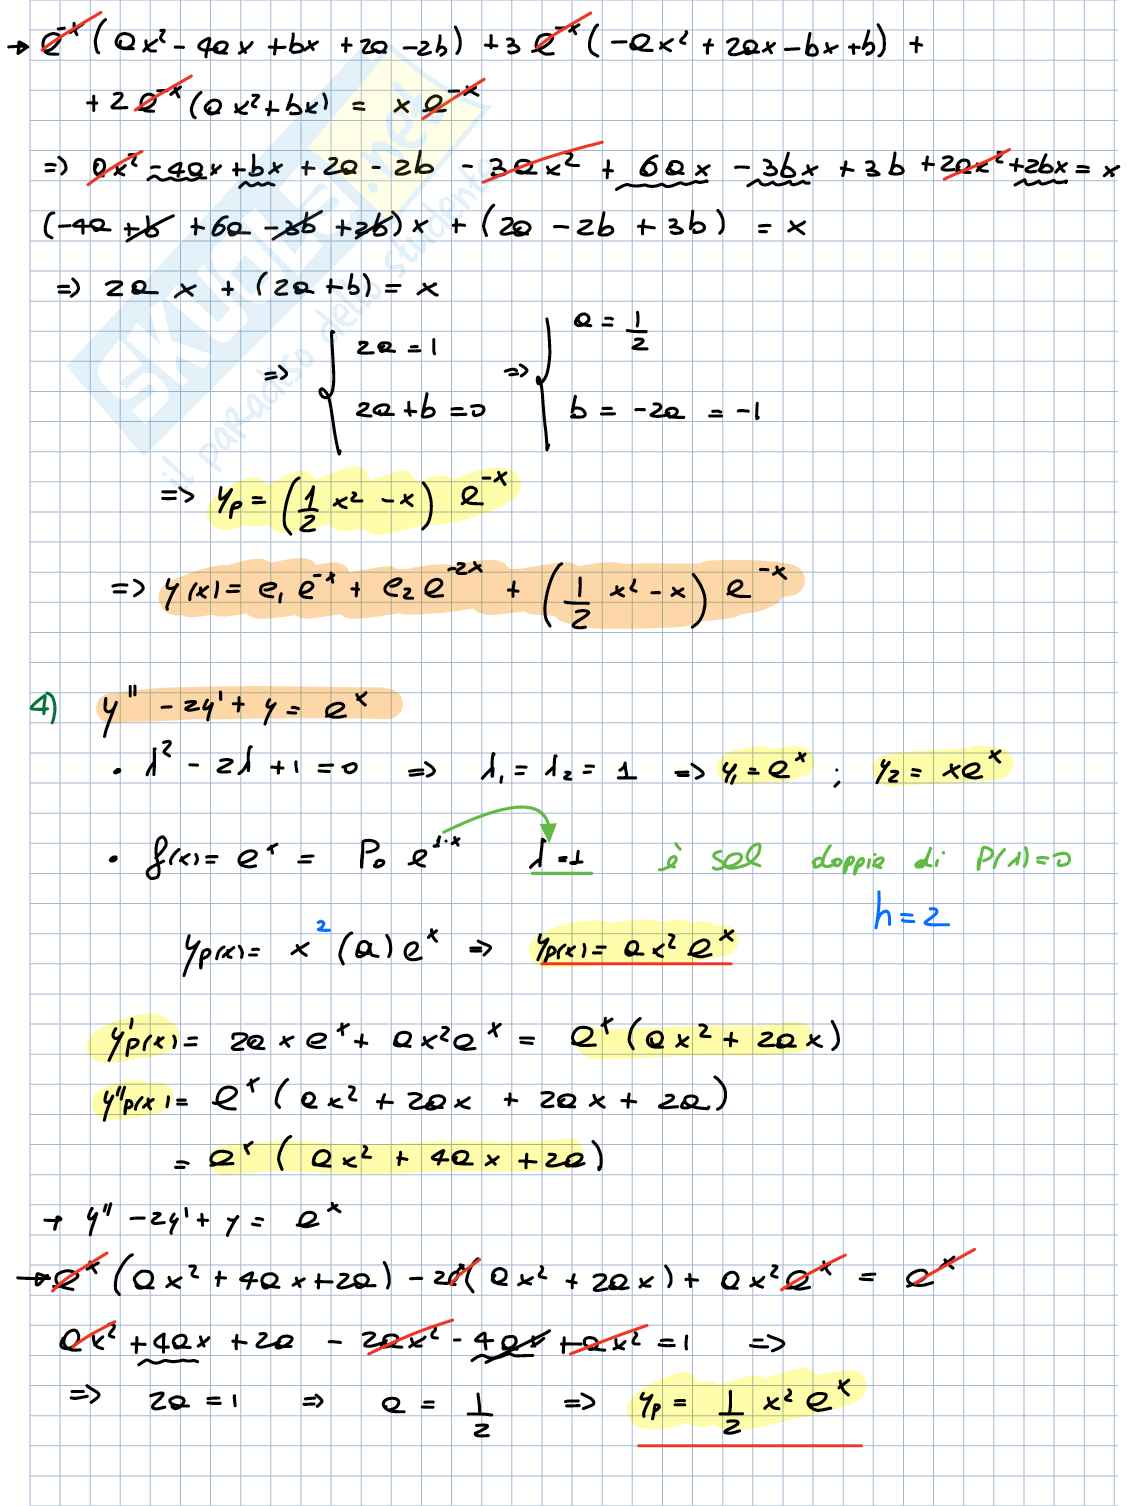 → e^-x (ax² - 4ax + bx + 2a - 2b) + 3 e^-x (-ax² + 2ax - bx + b) +
+ 2 e^-x (ax² + bx) = x e^-x
=> ax² - 4ax + bx + 2a - 2b - 3ax² + 6ax - 3bx + 3b + 2ax² + 2bx = x
(-4a + b + 6a - 3b + 2b) x + (2a - 2b + 3b) = x
=> 2a x + (2a + b) = x
=> { 2a = 1 => { a = 1/2
2a + b = 0 b = -2a = -1
=> yp = (1/2 x² - x) e^-x
=> y(x) = c₁ e^-x + c₂ e^-2x + (1/2 x² - x) e^-x
4) y'' - 2y' + y = e^x
• λ² - 2λ + 1 = 0 => λ₁ = λ₂ = 1 => y₁ = e^x ; y₂ = xe^x
• f(x) = e^x = P₀ e^1·x λ = 1 è sol doppia di P(λ) = 0
h = 2
yp(x) = x² (a) e^x => yp(x) = ax² e^x
y'p(x) = 2a x e^x + ax² e^x = e^x (ax² + 2ax)
y''p(x) = e^x (ax² + 2ax + 2ax + 2a)
= e^x (ax² + 4ax + 2a)
→ y'' - 2y' + y = e^x
→ e^x (ax² + 4ax + 2a) - 2e^x (ax² + 2ax) + ax² e^x = e^x
ax² + 4ax + 2a - 2ax² - 4ax + ax² = 1 =>
=> 2a = 1 => a = 1/2 => yp = 1/2 x² e^x
SKUOLA.net
il paradiso dello studente